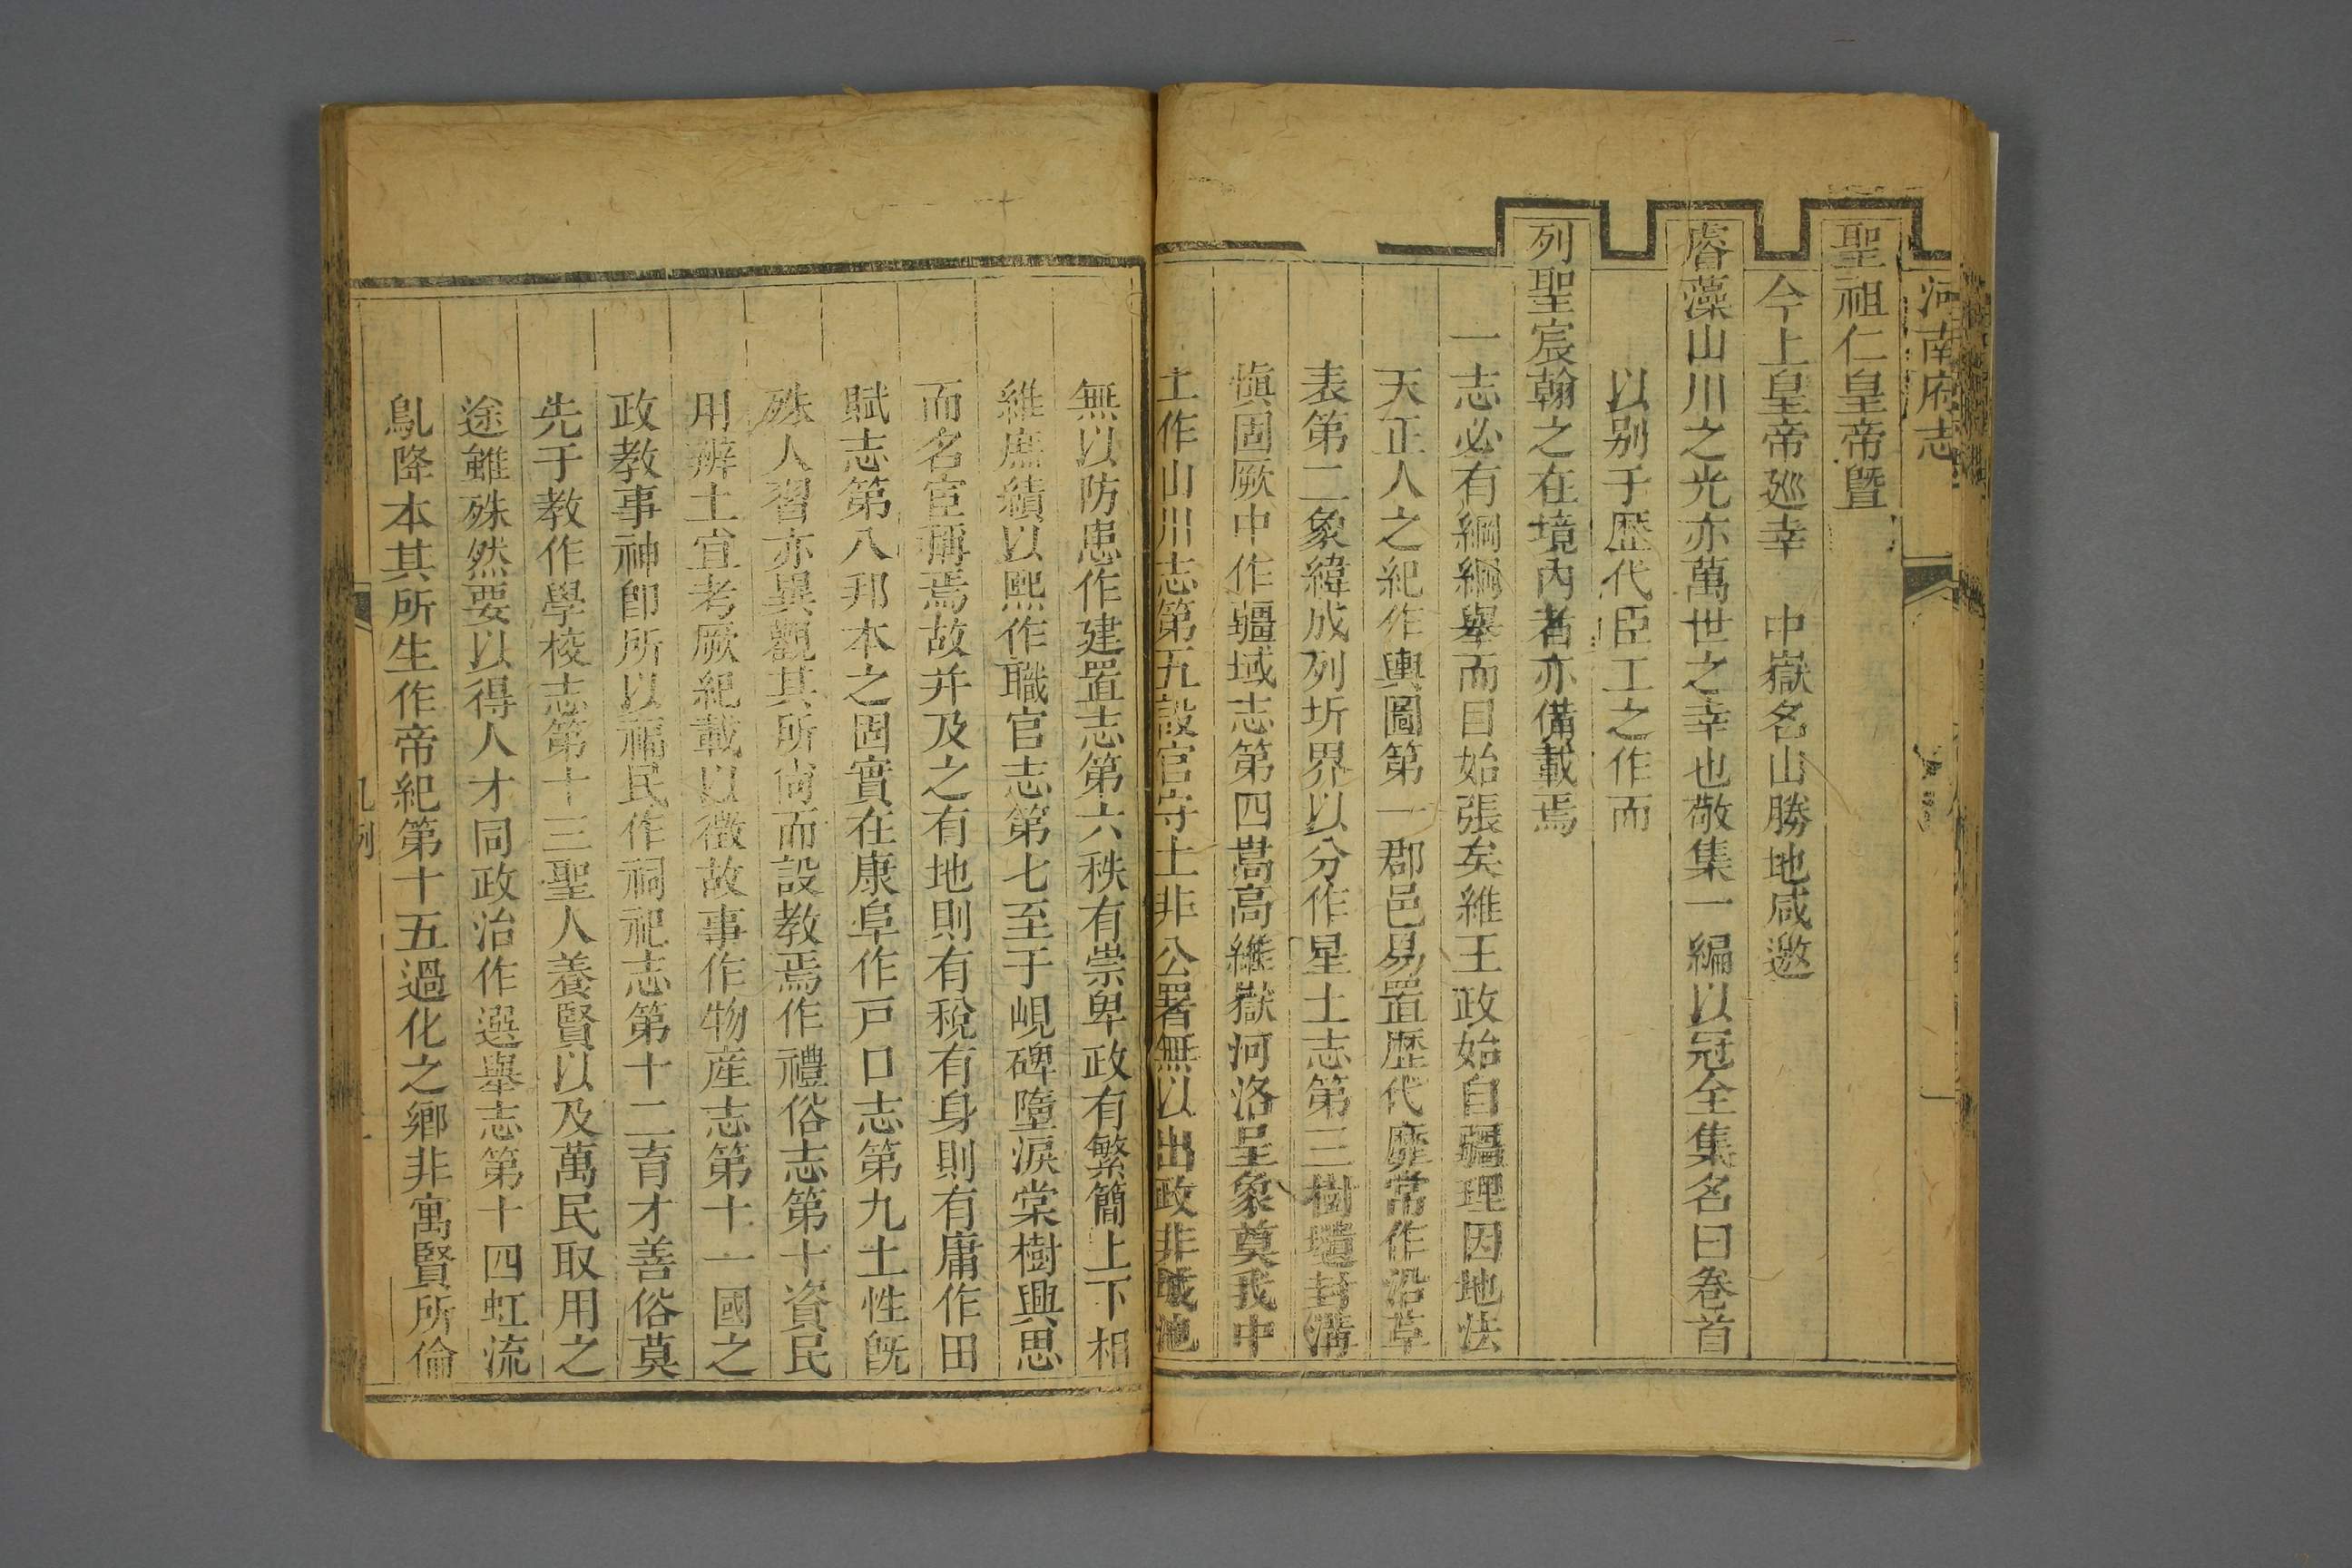 河南府志
聖祖仁皇帝暨
今上皇帝廵幸　中嶽名山勝地咸邀
睿藻山川之光亦萬世之幸也敬集一編以冠全集名曰卷首
以别于歷代臣工之作而
列聖宸翰之在境內者亦備載焉
一志必有綱綱舉而目始張矣維王政始自疆理因地法
天正人之紀作輿圖第一郡邑易置歷代靡常作沿革
表第二象緯成列圻界以分作星土志第三樹壝封溝
慎固厥中作疆域志第四嵩高維嶽河洛呈象奠我中
土作山川志第五設官守土非公署無以出政非城池
無以防患作建置志第六秩有崇卑政有繁簡上下相
維庶績以熙作職官志第七至于峴碑墮淚棠樹興思
而名宦稱焉故并及之有地則有稅有身則有庸作田
賦志第八邦本之固實在康阜作戸口志第九土性旣
殊人習亦異觀其所尚而設教焉作禮俗志第十資民
用辨土宜考厥紀載以徵故事作物産志第十一國之
政教事神卽所以福民作祠祀志第十二育才善俗莫
先于教作學校志第十三聖人養賢以及萬民取用之
途雖殊然要以得人才同政治作選舉志第十四虹流
鳦降本其所生作帝紀第十五過化之鄉非寓賢所倫
凡例